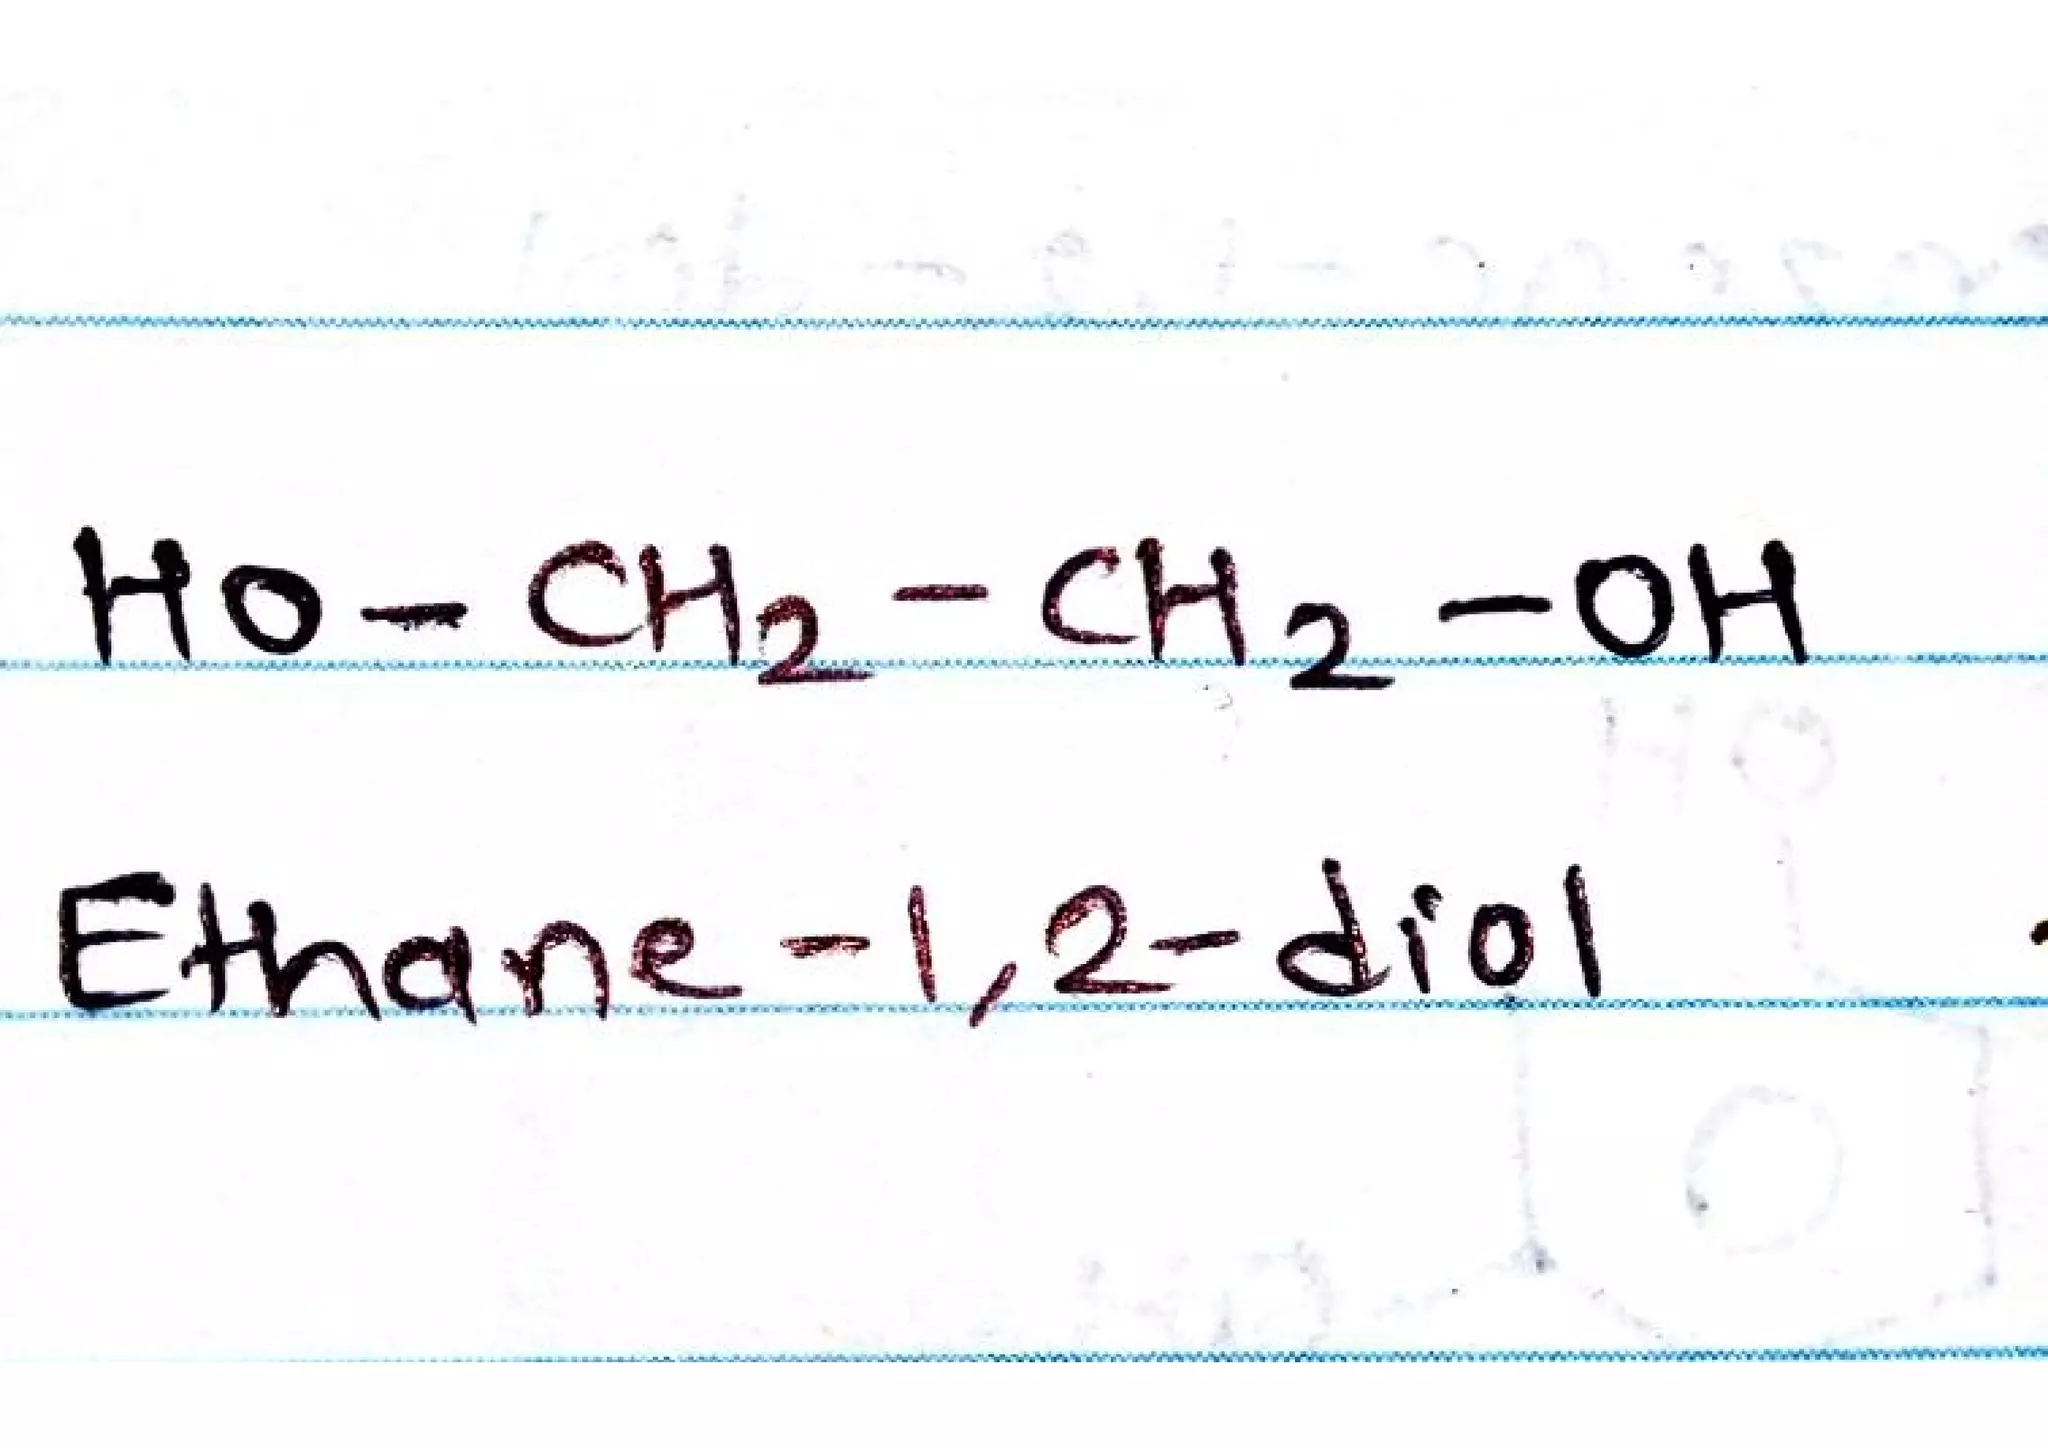 HO-CH₂-CH₂-OH
Ethane-1,2-diol